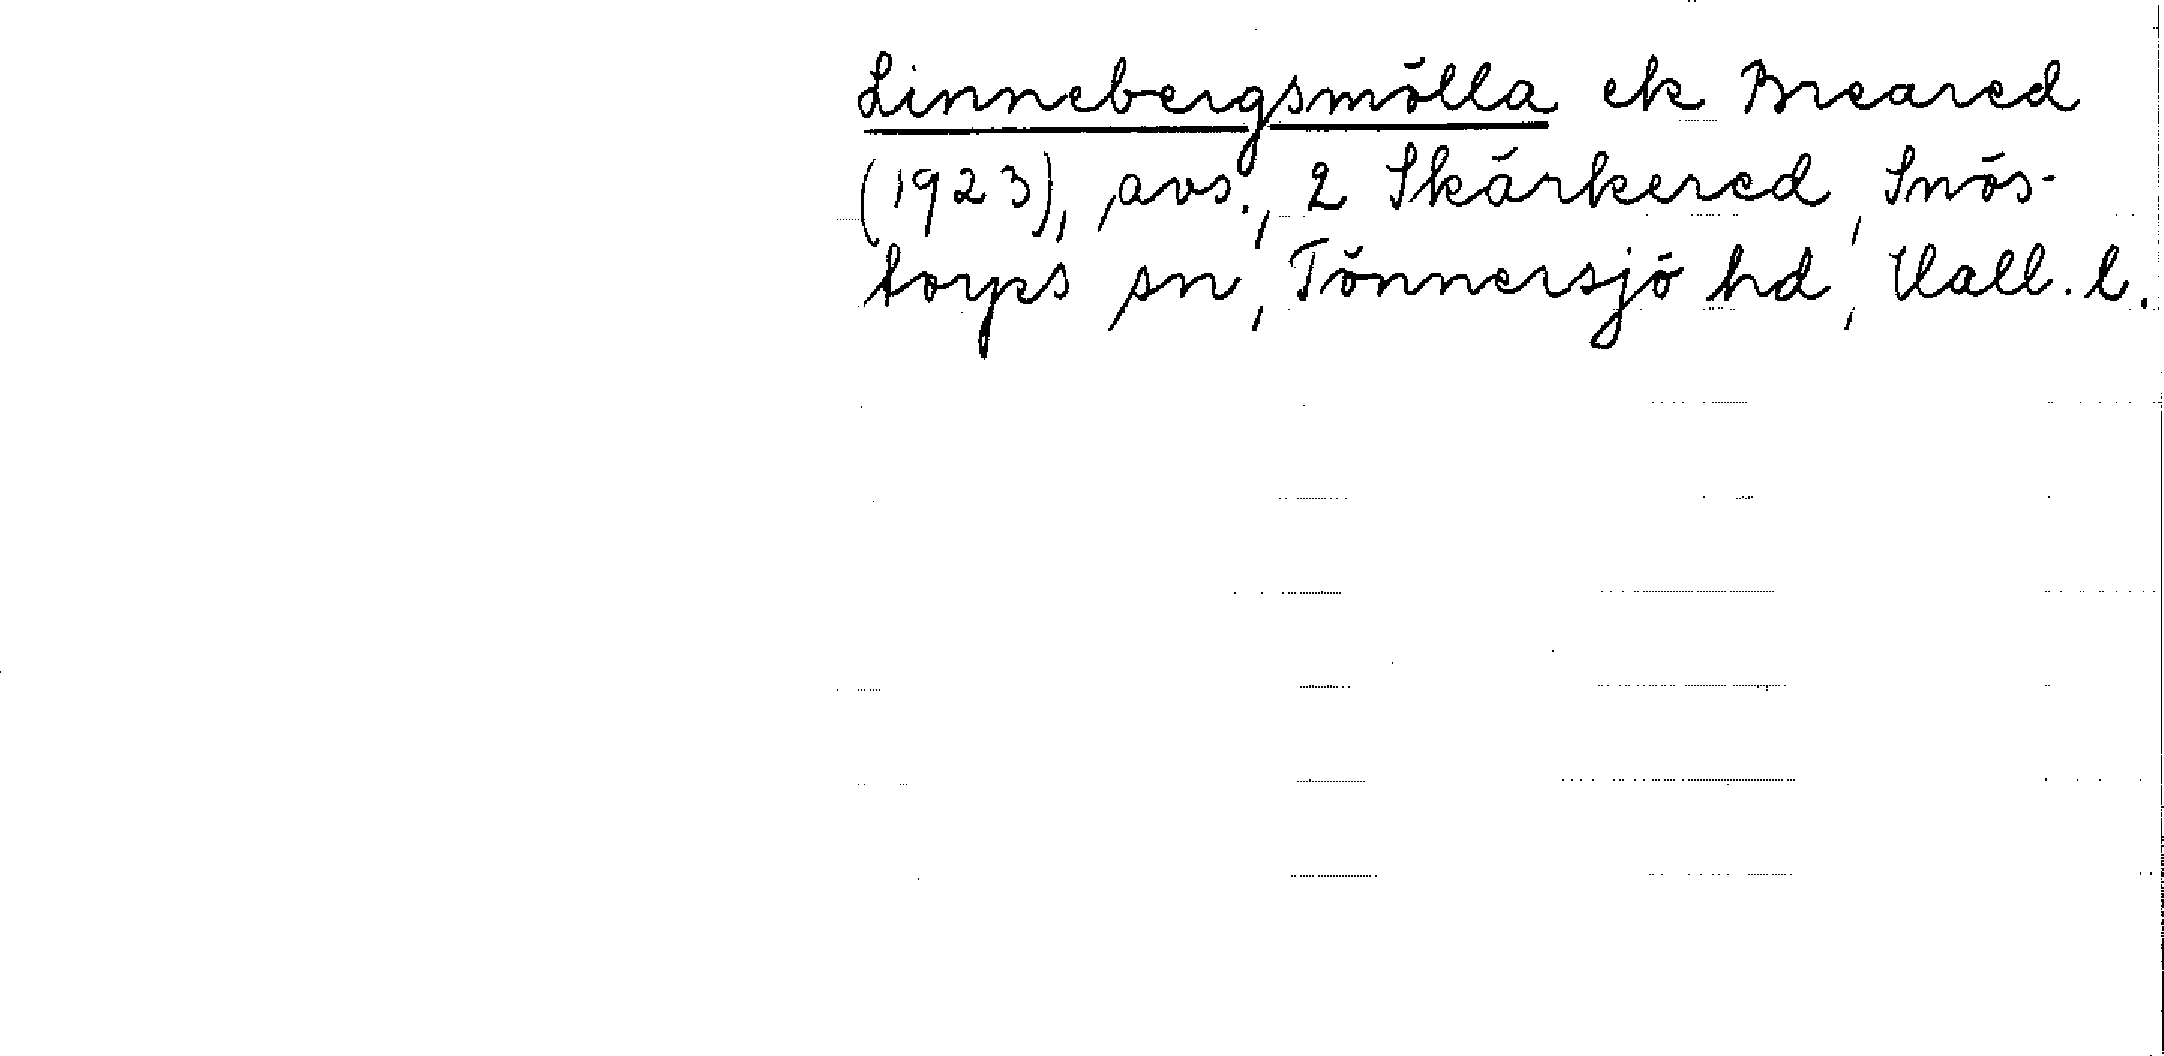 Linnebergsmölla ek Breared
(1923), avs., 2 Skärkered, Snös-
torps sn, Tönnersjö hd, Hall. l.